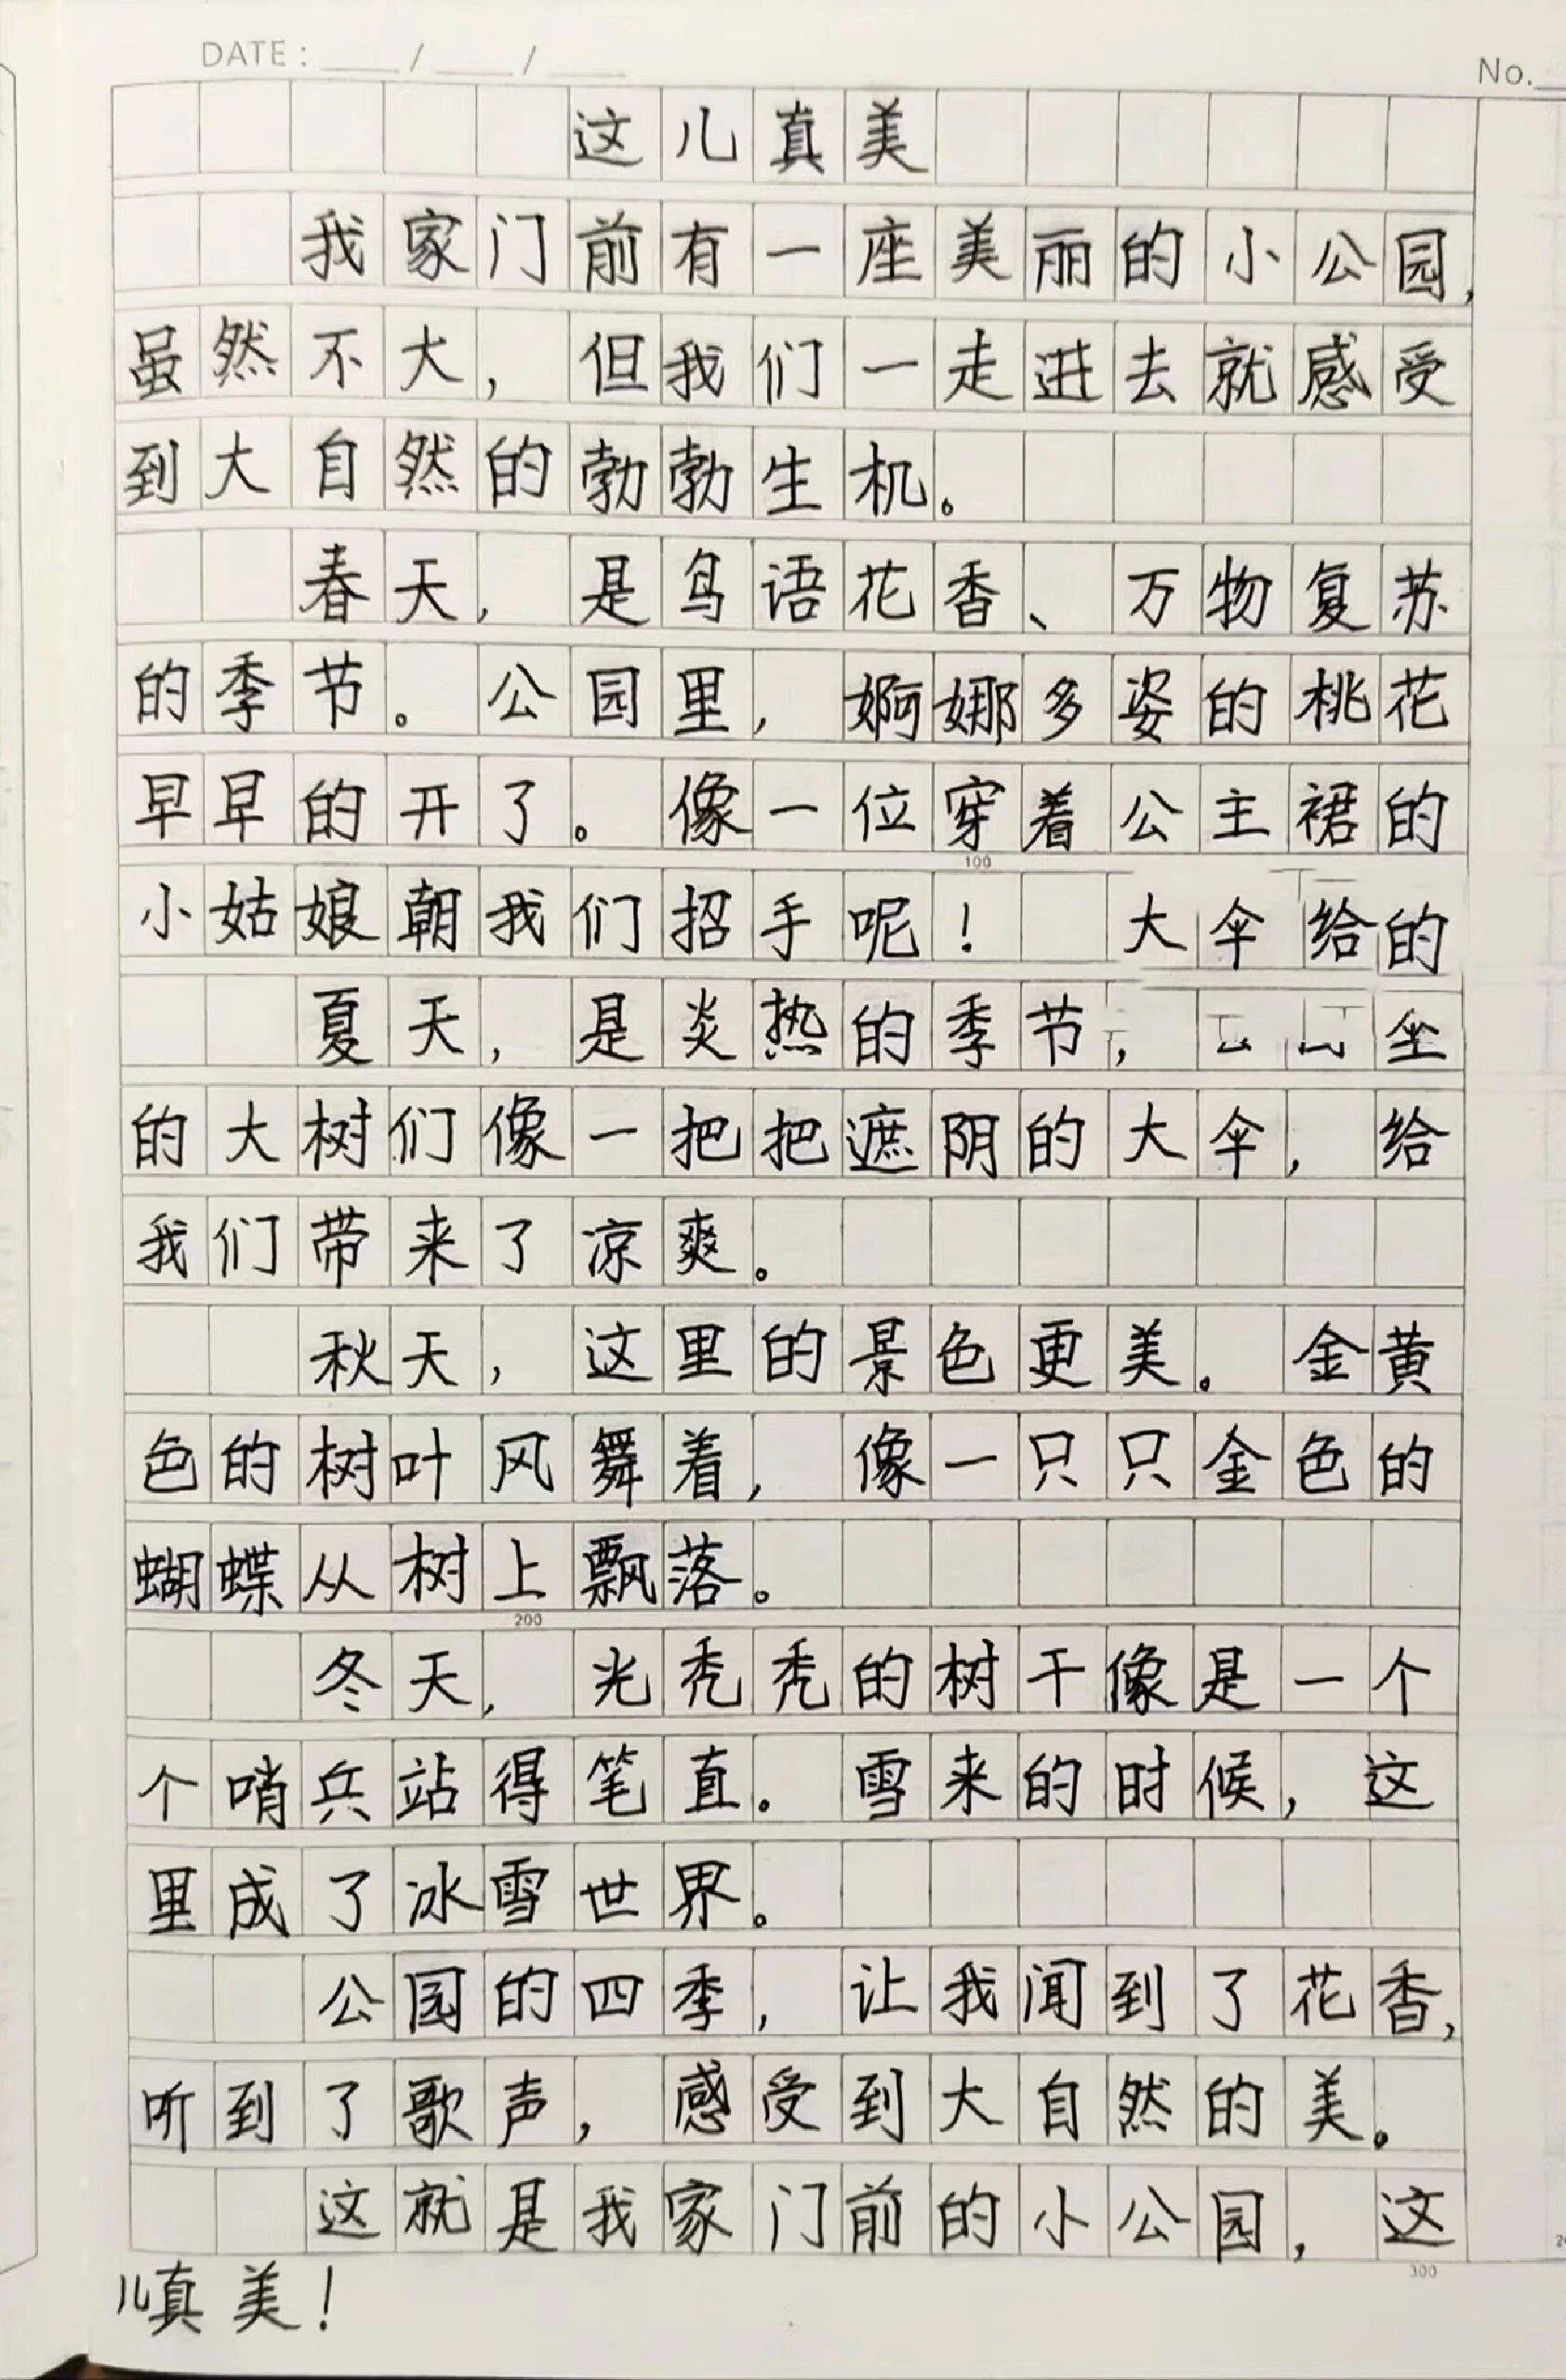 DATE: ___/___/___
No.
这儿真美
我家门前有一座美丽的小公园,
虽然不大,但我们一走进去就感受
到大自然的勃勃生机。
春天,是鸟语花香、万物复苏
的季节。公园里,婀娜多姿的桃花
早早的开了。像一位穿着公主裙的
100
小姑娘朝我们招手呢! 大伞给的
夏天,是炎热的季节,
的大树们像一把把遮阴的大伞,给
我们带来了凉爽。
秋天,这里的景色更美。金黄
色的树叶风舞着,像一只只金色的
蝴蝶从树上飘落。
200
冬天,光秃秃的树干像是一个
个哨兵站得笔直。雪来的时候,这
里成了冰雪世界。
公园的四季,让我闻到了花香,
听到了歌声,感受到大自然的美。
这就是我家门前的小公园,这
300
儿真美!